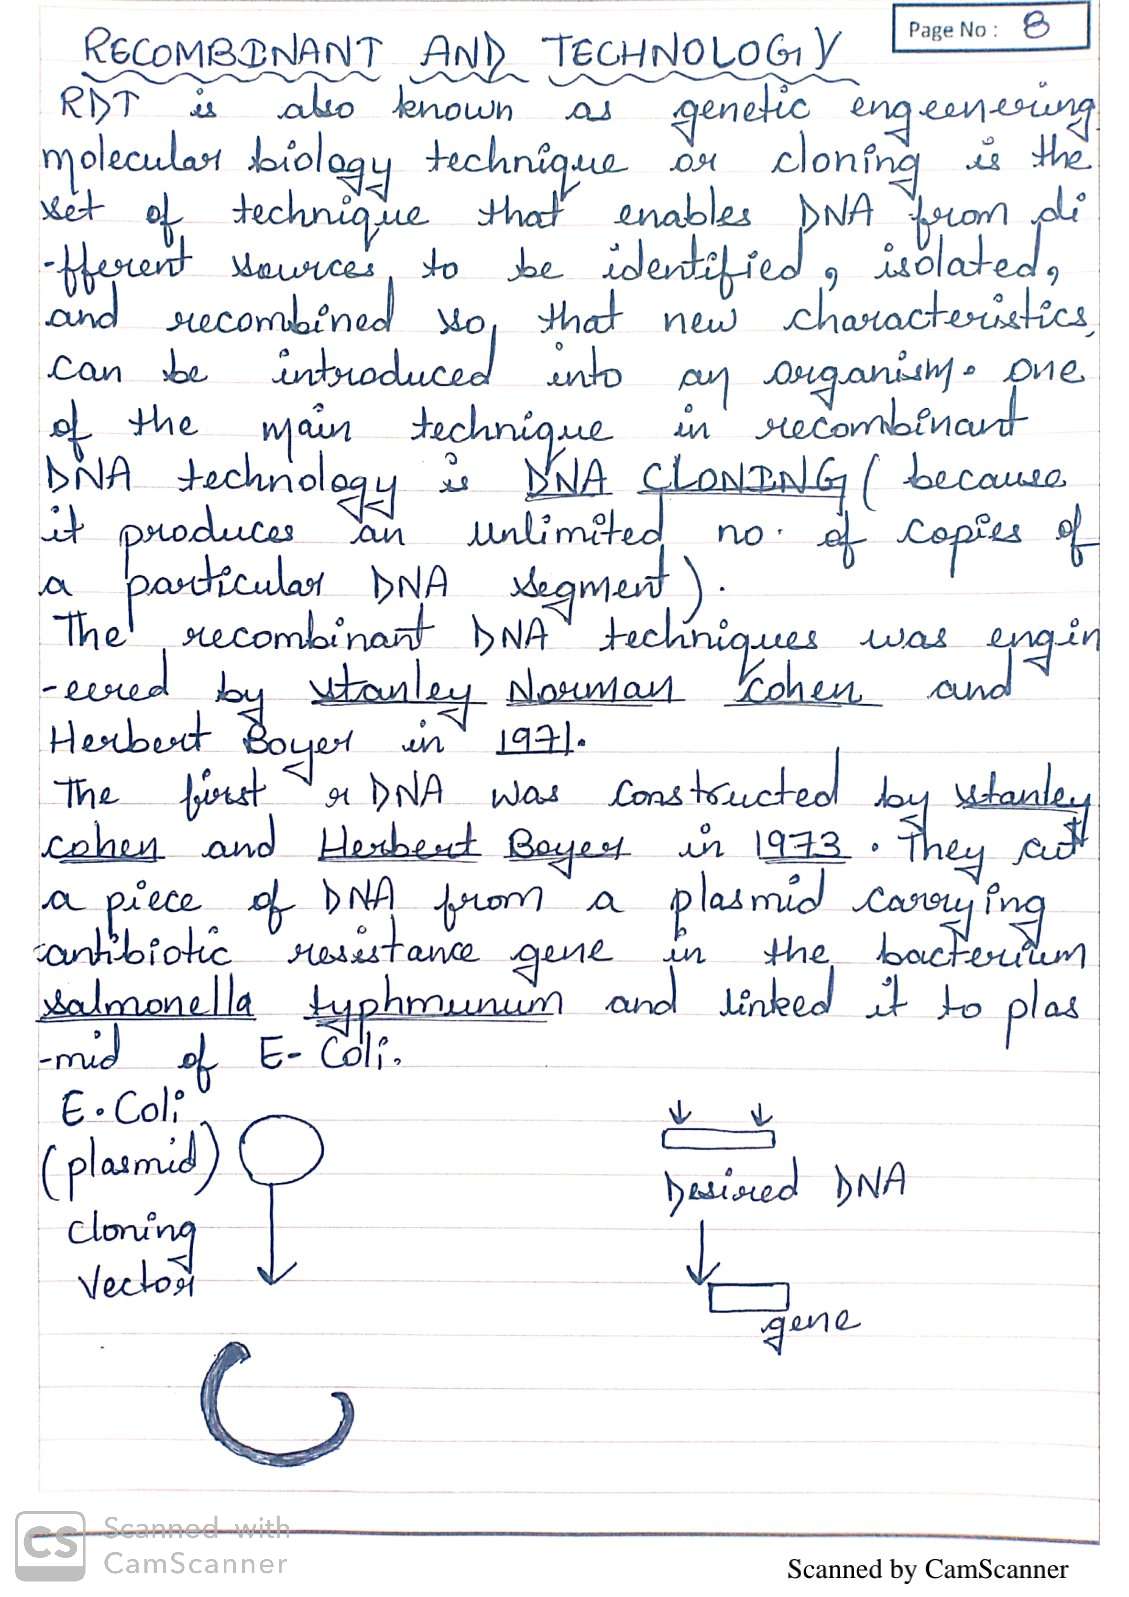 Page No : 8
RECOMBINANT AND TECHNOLOGY
RDT is also known as genetic engeenering
molecular biology technique or cloning is the
set of technique that enables DNA from di
-fferent sources, to be identified, isolated,
and recombined so, that new characteristics,
can be introduced into an organism. one
of the main technique in recombinant
DNA technology is DNA CLONING ( because
it produces an unlimited no. of copies of
a particular DNA segment).
The recombinant DNA techniques was engin
-eered by Stanley Norman Cohen and
Herbert Boyer in 1971.
The first r DNA was constructed by Stanley
cohen and Herbert Boyer in 1973. They cut
a piece of DNA from a plasmid carrying
antibiotic resistance gene in the bacterium
salmonella typhmunum and linked it to plas
-mid of E- Coli.
E. Coli
(plasmid)
cloning
Vector
Desired DNA
gene
CS Scanned with
CamScanner
Scanned by CamScanner